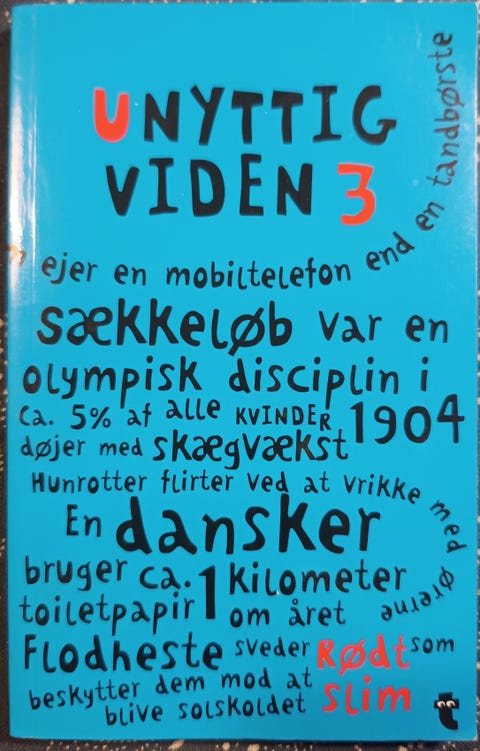 UNYTTIG
VIDEN 3
ejer en mobiltelefon end en tandbørste
sækkeløb var en
olympisk disciplin i
1904
ca. 5% af alle KVINDER
døjer med skægvækst
Hunrotter flirter ved at vrikke med ørerne
En dansker
bruger ca. 1 kilometer
toiletpapir om året
Flodheste sveder Rødt som
beskytter dem mod at slim
blive solskoldet
t